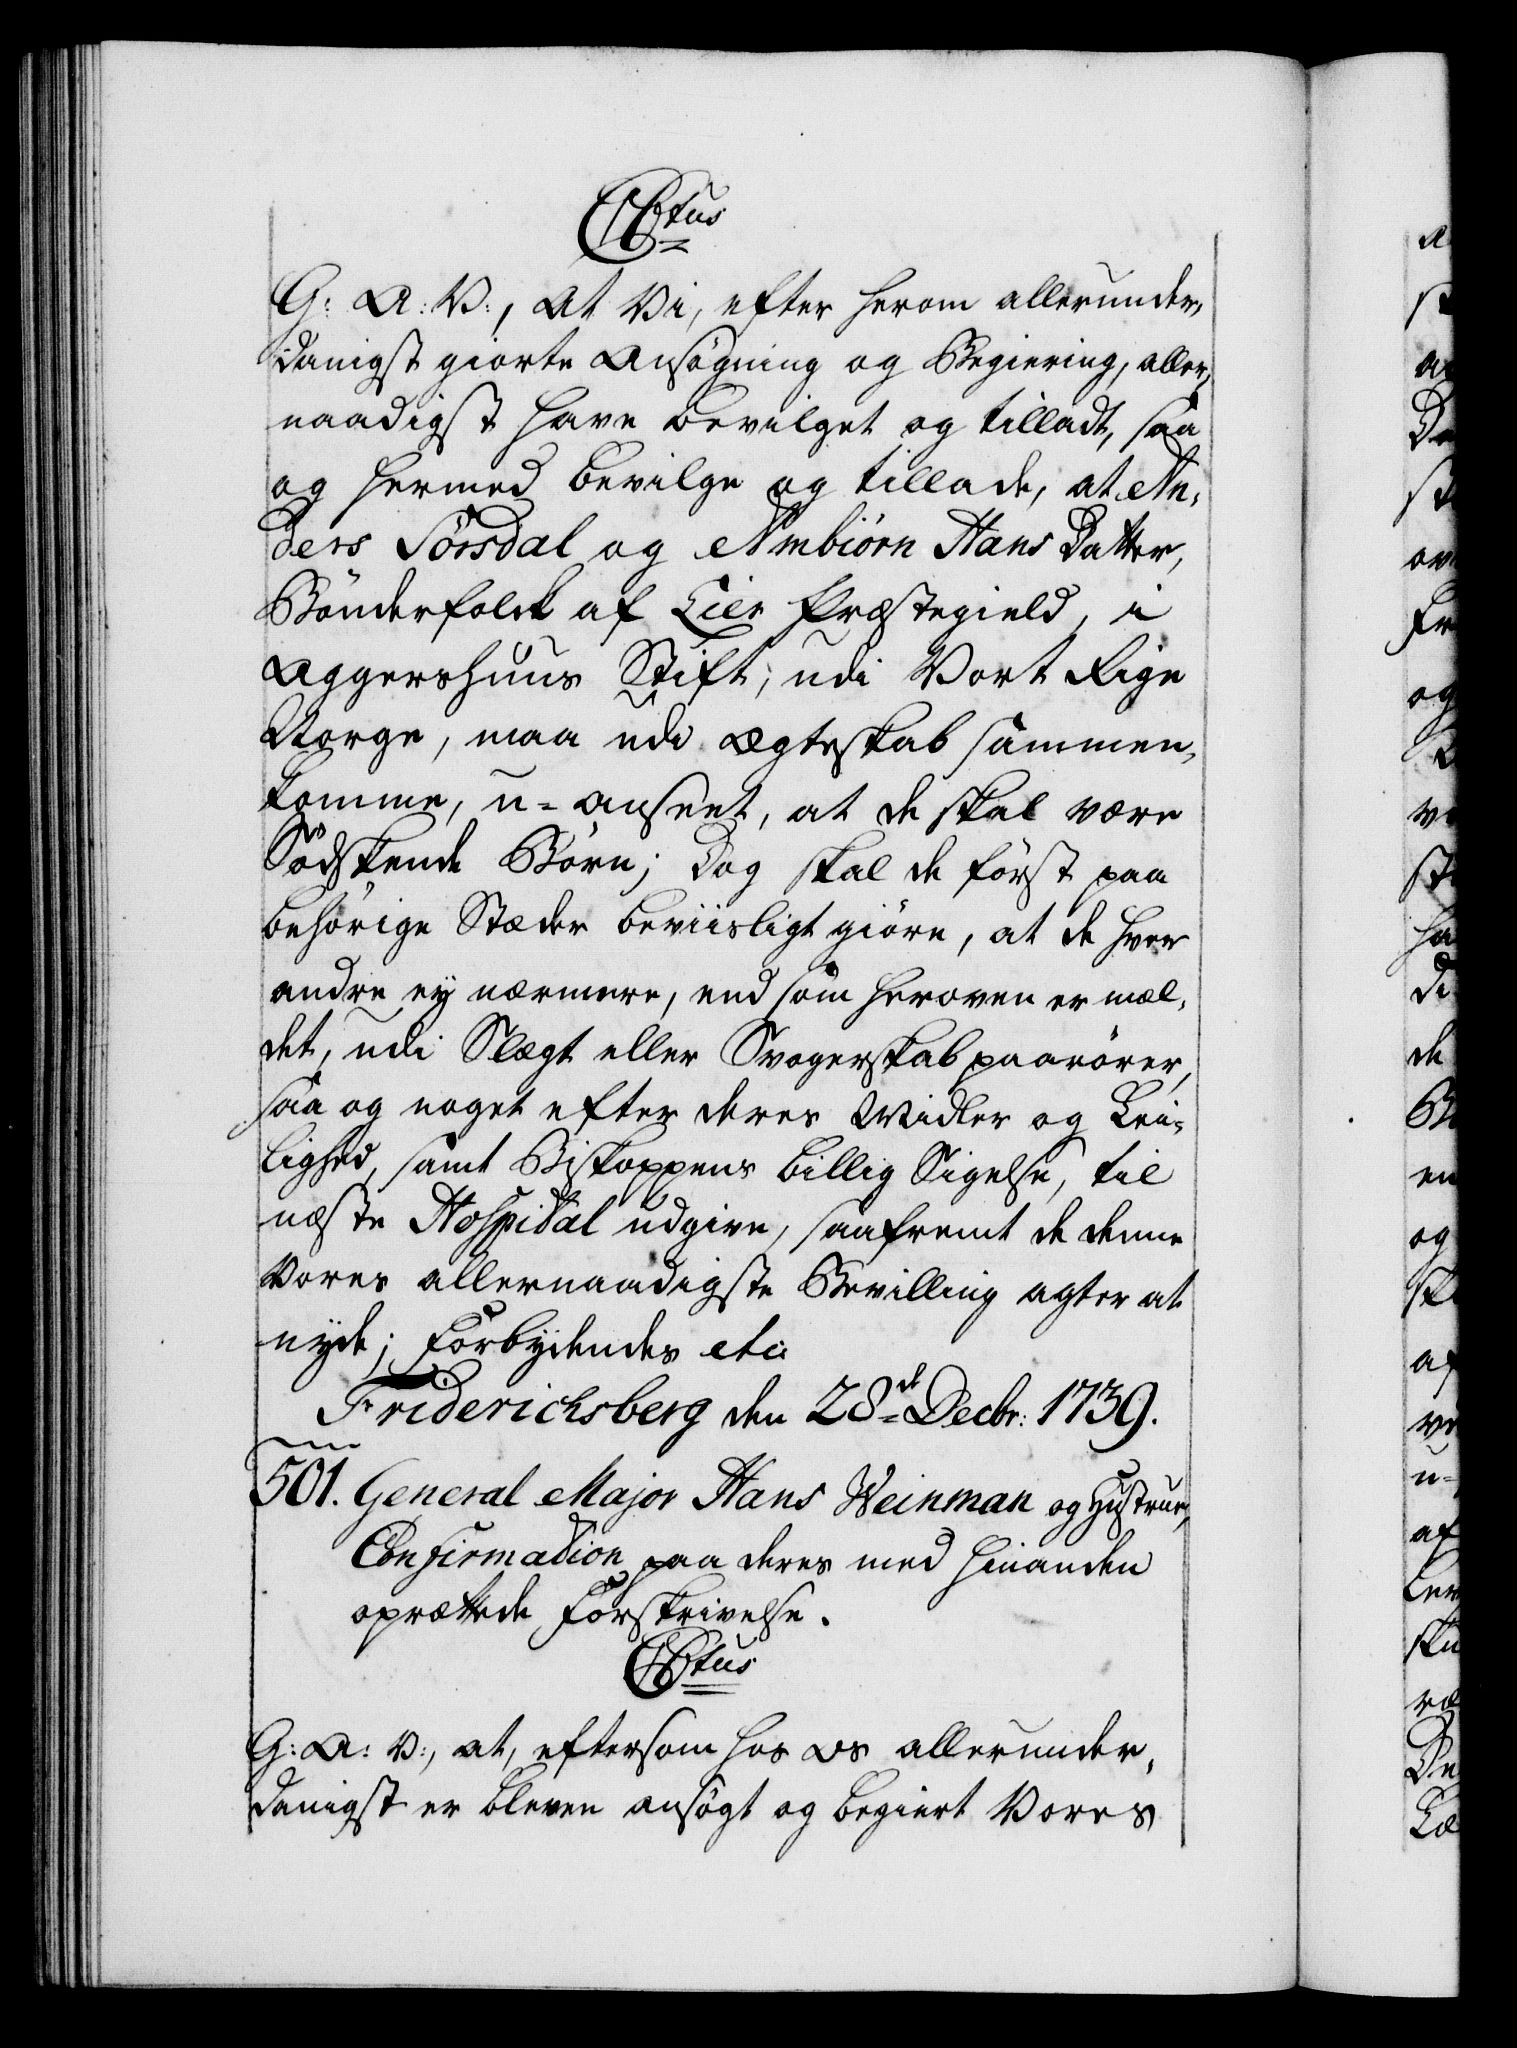 C6tus
G: A: V:, At Vi, efter herom allerunder,
danigst giorte Ansögning og Begiering, aller,
naadigst have bevilget og tilladt, saa
og hermed bevilge og tillade, at An,
ders Sörsdal og Ambiörn Hans Datter,
Bönderfolck af Lier Præstegield, i
Aggershuus Stift, udi Vort Rige
Norge, maa udi Ægteskab sammen,
komme, u-anseet, at de skal være
Södskende Börn; Dog skal de först paa
behörige Stæder beviisligt giöre, at de hver
andre ey nærmere, end som heroven er mel,
det, udi Slægt eller Svogerskab paarörer,
saa og noget efter deres Midler og Lei-
lighed, samt Biskoppens billig Sigelse, til
næste Hospital udgive, saafremt de denne
Vores allernaadigste Bevilling agter at
nyde; Forbydendes etc:
Friderichsberg den 28de Decbr: 1739.
501. General Major Hans Weinman og Hustrue,
Confirmation paa deres med hinanden
oprættede Forskrivelse.
C6tus
G: A: V:, at, eftersom hos Os allerunder,
danigst er bleven ansögt og begiert Vores